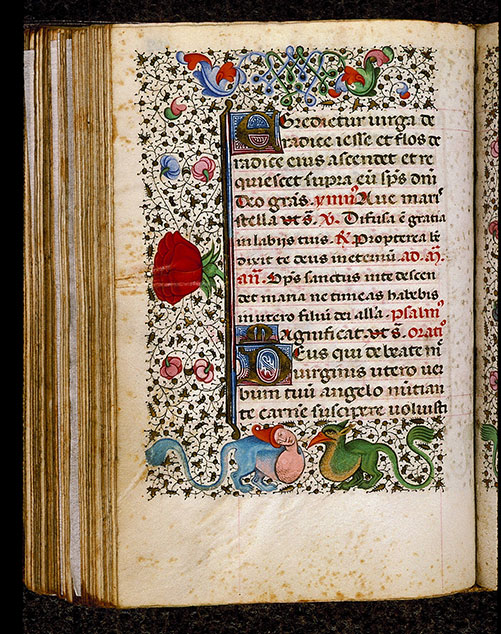 Egredietur uirga de
radice iesse et flos de
radice eius ascendet et re
quiescet supra eū sp̄s dn̄i
Deo grās. ymnꝰ Aue mari
stella vt s̄. ꝟ. Difusa ē gratia
in labijs tuis. ꝶ Propterea bn̄
dixit te deus ineternū. ad. m̄.
an̄. Sp̄s sanctus in te descen
det maria ne timeas habebis
in utero filiū dei all'a. psalmꝰ
Magnificat. vt s̄. oratio
Deus qui de beate m̄
uirginis utero uer
bum tuū angelo nūtian
te carnē suscipere uoluisti